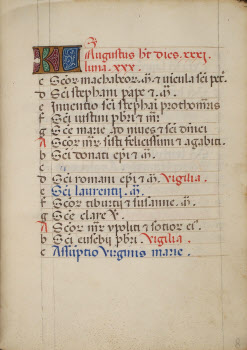 KL Augustus ht dies. xxxi.
luna. xxx.
c Scor machabeor. m̄. & vicula sci pet.
d Sci stephani pape & m̄.
e Inuentio sci stephai prothomris
f Sci iustini pbri & mr̄.
g Sce marie ad niues & sci dnici
A Scor mr̄ sisti felicissimi & agapiti.
b Sci donati epi & m̄.
c
d Sci romani epi & m̄. Vigilia.
e Sci laurentii. m̄.
f Scor tiburtii & susanne. m̄.
g Sce clare v.
A Scor mr̄ ypoliti & socior ei.
b Sci eusebii pbri. Vigilia.
c Assūptio virginis marie.